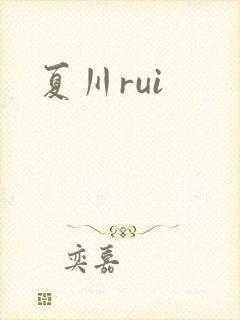 夏川rui
奕嘉